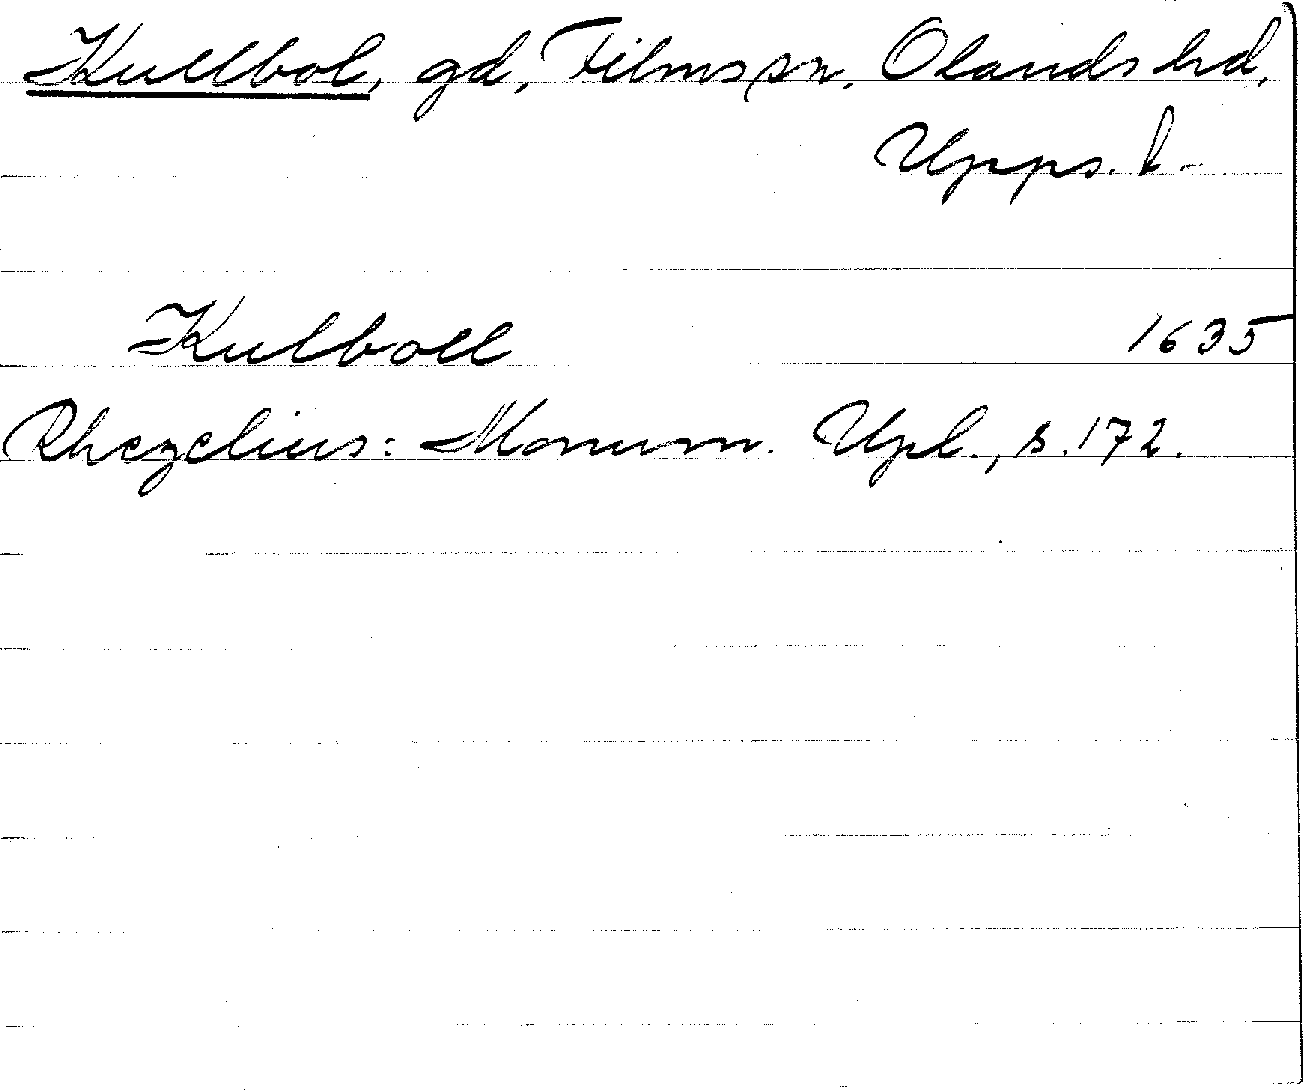 Kullbol, gd, Films sn, Olands hd,
Upps. l.
Kulboll 1635
Rhezelius: Monum. Upl., s. 172.